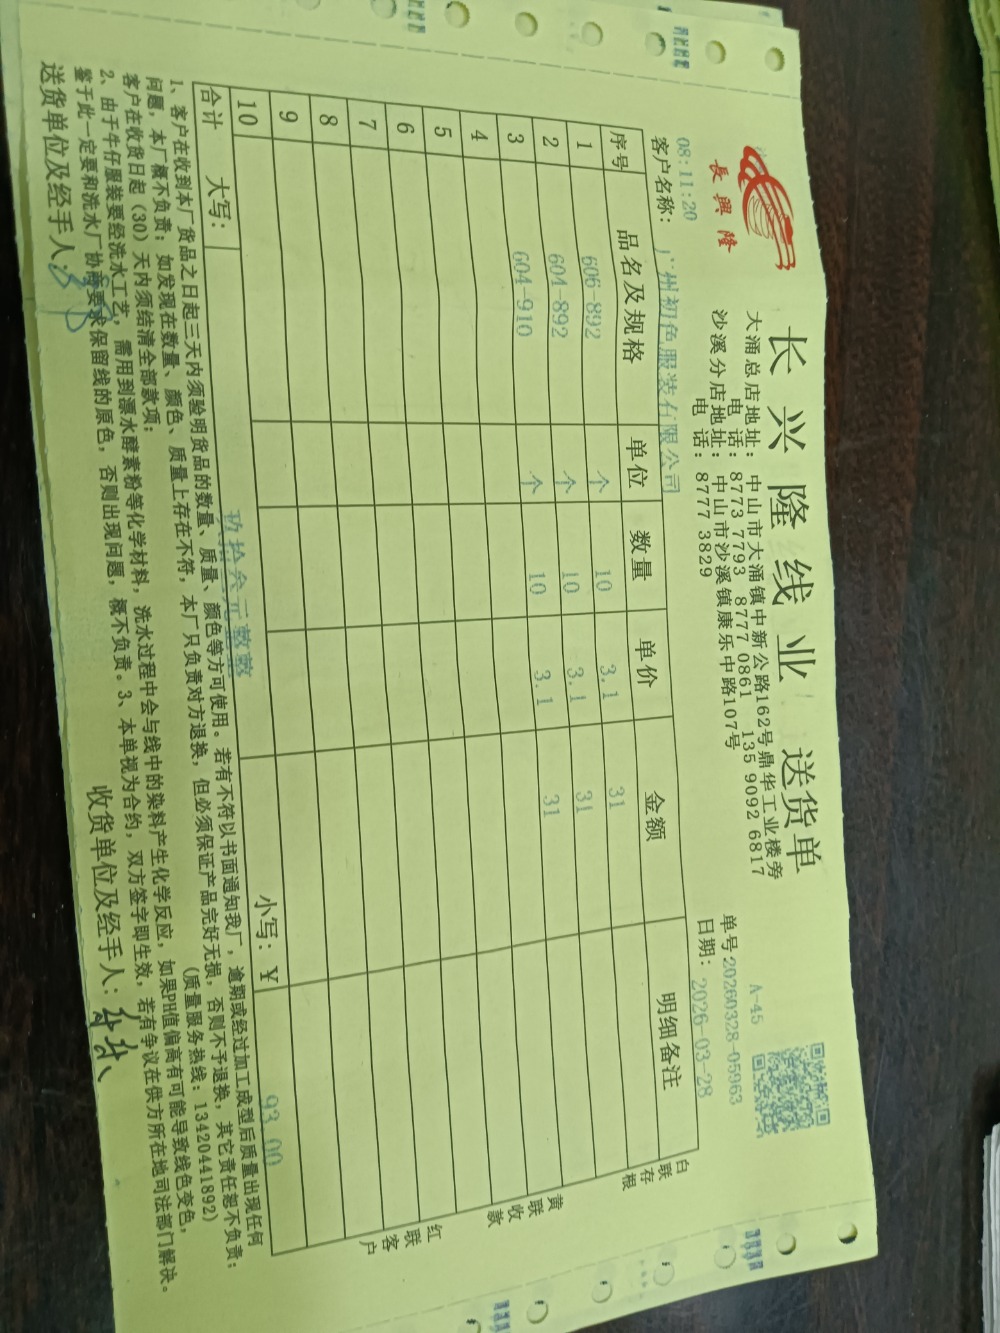 長興隆
长兴隆线业 送货单
大涌总店地址：中山市大涌镇中新公路162号鼎华工业楼旁
电话：8773 7793 8777 0861 135 9092 6817
沙溪分店地址：中山市沙溪镇康乐中路107号
电话：8777 3829
A-45
单号20260328-05963
日期：2026-03-28
08:11:20
客户名称：广州初色服装有限公司
序号 品名及规格 单位 数量 单价 金额 明细备注
1 606-892 个 10 3.1 31
2 604-892 个 10 3.1 31
3 604-910 个 10 3.1 31
4
5
6
7
8
9
10
合计 大写：玖拾叁元整整 小写：￥93.00
白联存根
黄联收款
红联客户
1、客户在收到本厂货品之日起三天内须验明货品的数量、质量、颜色等方可使用。若有不符以书面通知我厂，逾期或经过加工成型后质量出现任何
问题，本厂概不负责；如发现在数量、颜色、质量上存在不符，本厂只负责对方退换，但必须保证产品完好无损，否则不予退换，其它责任恕不负责；
客户在收货日起（30）天内须结清全部款项； （质量服务热线：13420441892）
2、由于牛仔服装要经洗水工艺，需用到漂水酵素粉等化学材料，洗水过程中会与线中的染料产生化学反应，如果PH值偏高有可能导致线色变色，
鉴于此一定要和洗水厂协商要求保留线的原色，否则出现问题，概不负责。3、本单视为合约，双方签字即生效，若有争议在供方所在地司法部门解决。
送货单位及经手人： 收货单位及经手人：